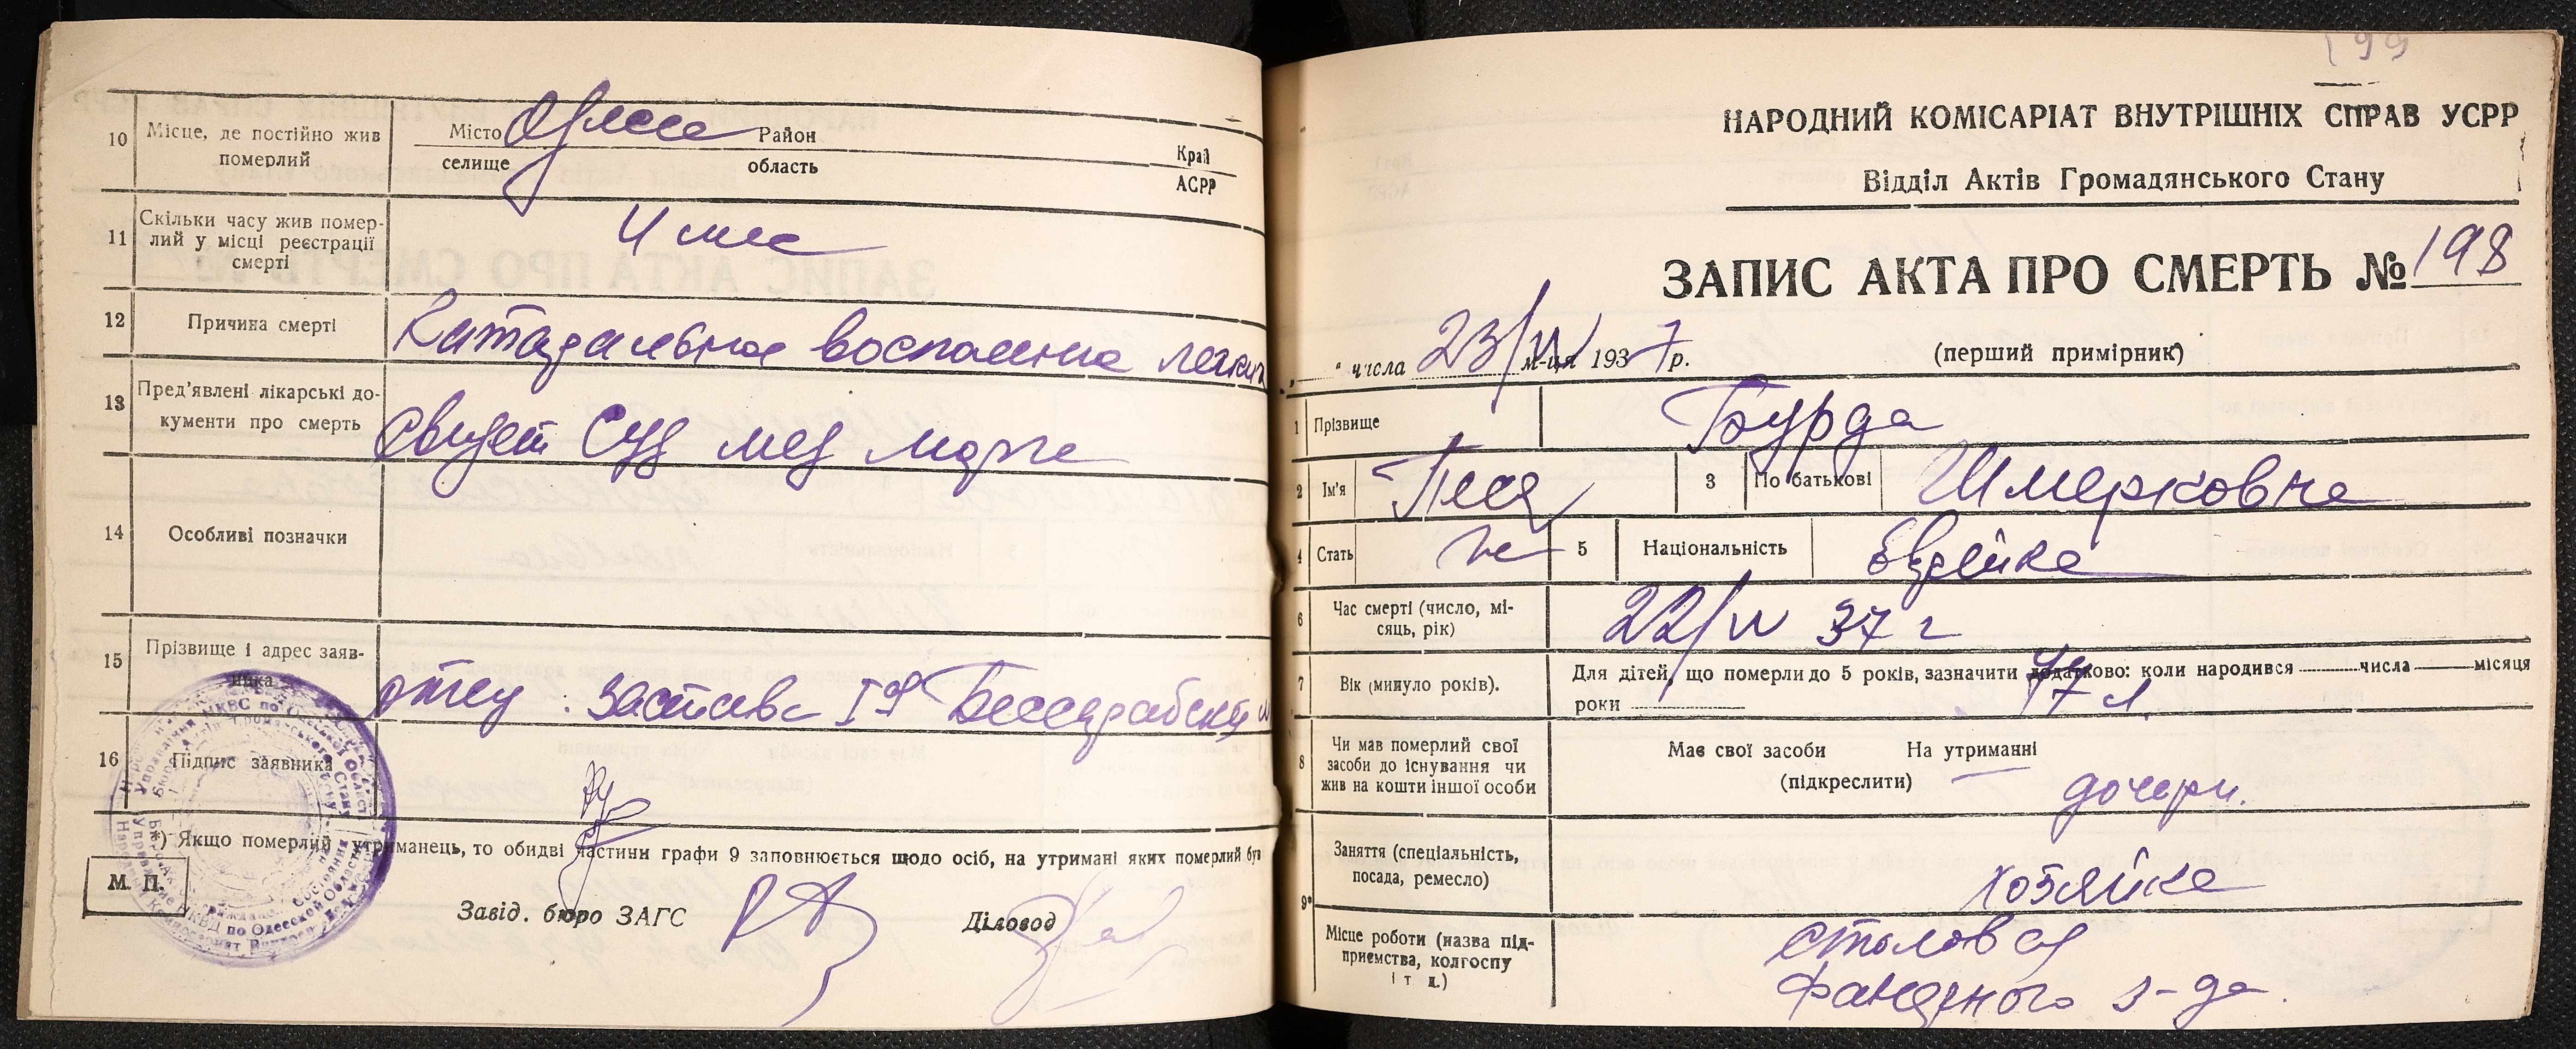 10
Місце, де постійно жив
померлий
Місто Одесса Район
селище область
Край
АСРР
11
Скільки часу жив помер-
лий у місці реєстрації
смерті
4 мес
12
Причина смерті
Катаральное воспаление легких
13
Пред'явлені лікарські до-
кументи про смерть
свидет Суд мед морга
14
Особливі позначки
15
Прізвище і адрес заяв-
ника
застава Бессарабский
16
Підпис заявника
*) Якщо померлий утриманець, то обидві частини графи 9 заповнюється щодо осіб, на утримані яких померлий був
М. П.
Завід. бюро ЗАГС
Діловод
199
НАРОДНИЙ КОМІСАРІАТ ВНУТРІШНІХ СПРАВ УСРР
Відділ Актів Громадянського Стану
ЗАПИС АКТА ПРО СМЕРТЬ № 198
" числа 23/IV м-ця 1937 р.
(перший примірник)
1 Прізвище Бурда
2 Ім'я Песя 3 По батькові Шмерковна
4 Стать ж 5 Національність Еврейка
6
Час смерті (число, мі-
сяць, рік)
22/IV 37 г
7
Вік (минуло років).
Для дітей, що померли до 5 років, зазначити додатково: коли народився числа місяця
роки
77 л.
8
Чи мав померлий свої
засоби до існування чи
жив на кошти іншої особи
Має свої засоби На утриманні
(підкреслити)
дочери.
9*
Заняття (спеціальність,
посада, ремесло)
хозяйка
Місце роботи (назва під-
приємства, колгоспу
і т. д.)
столовая
фанерного з-да.